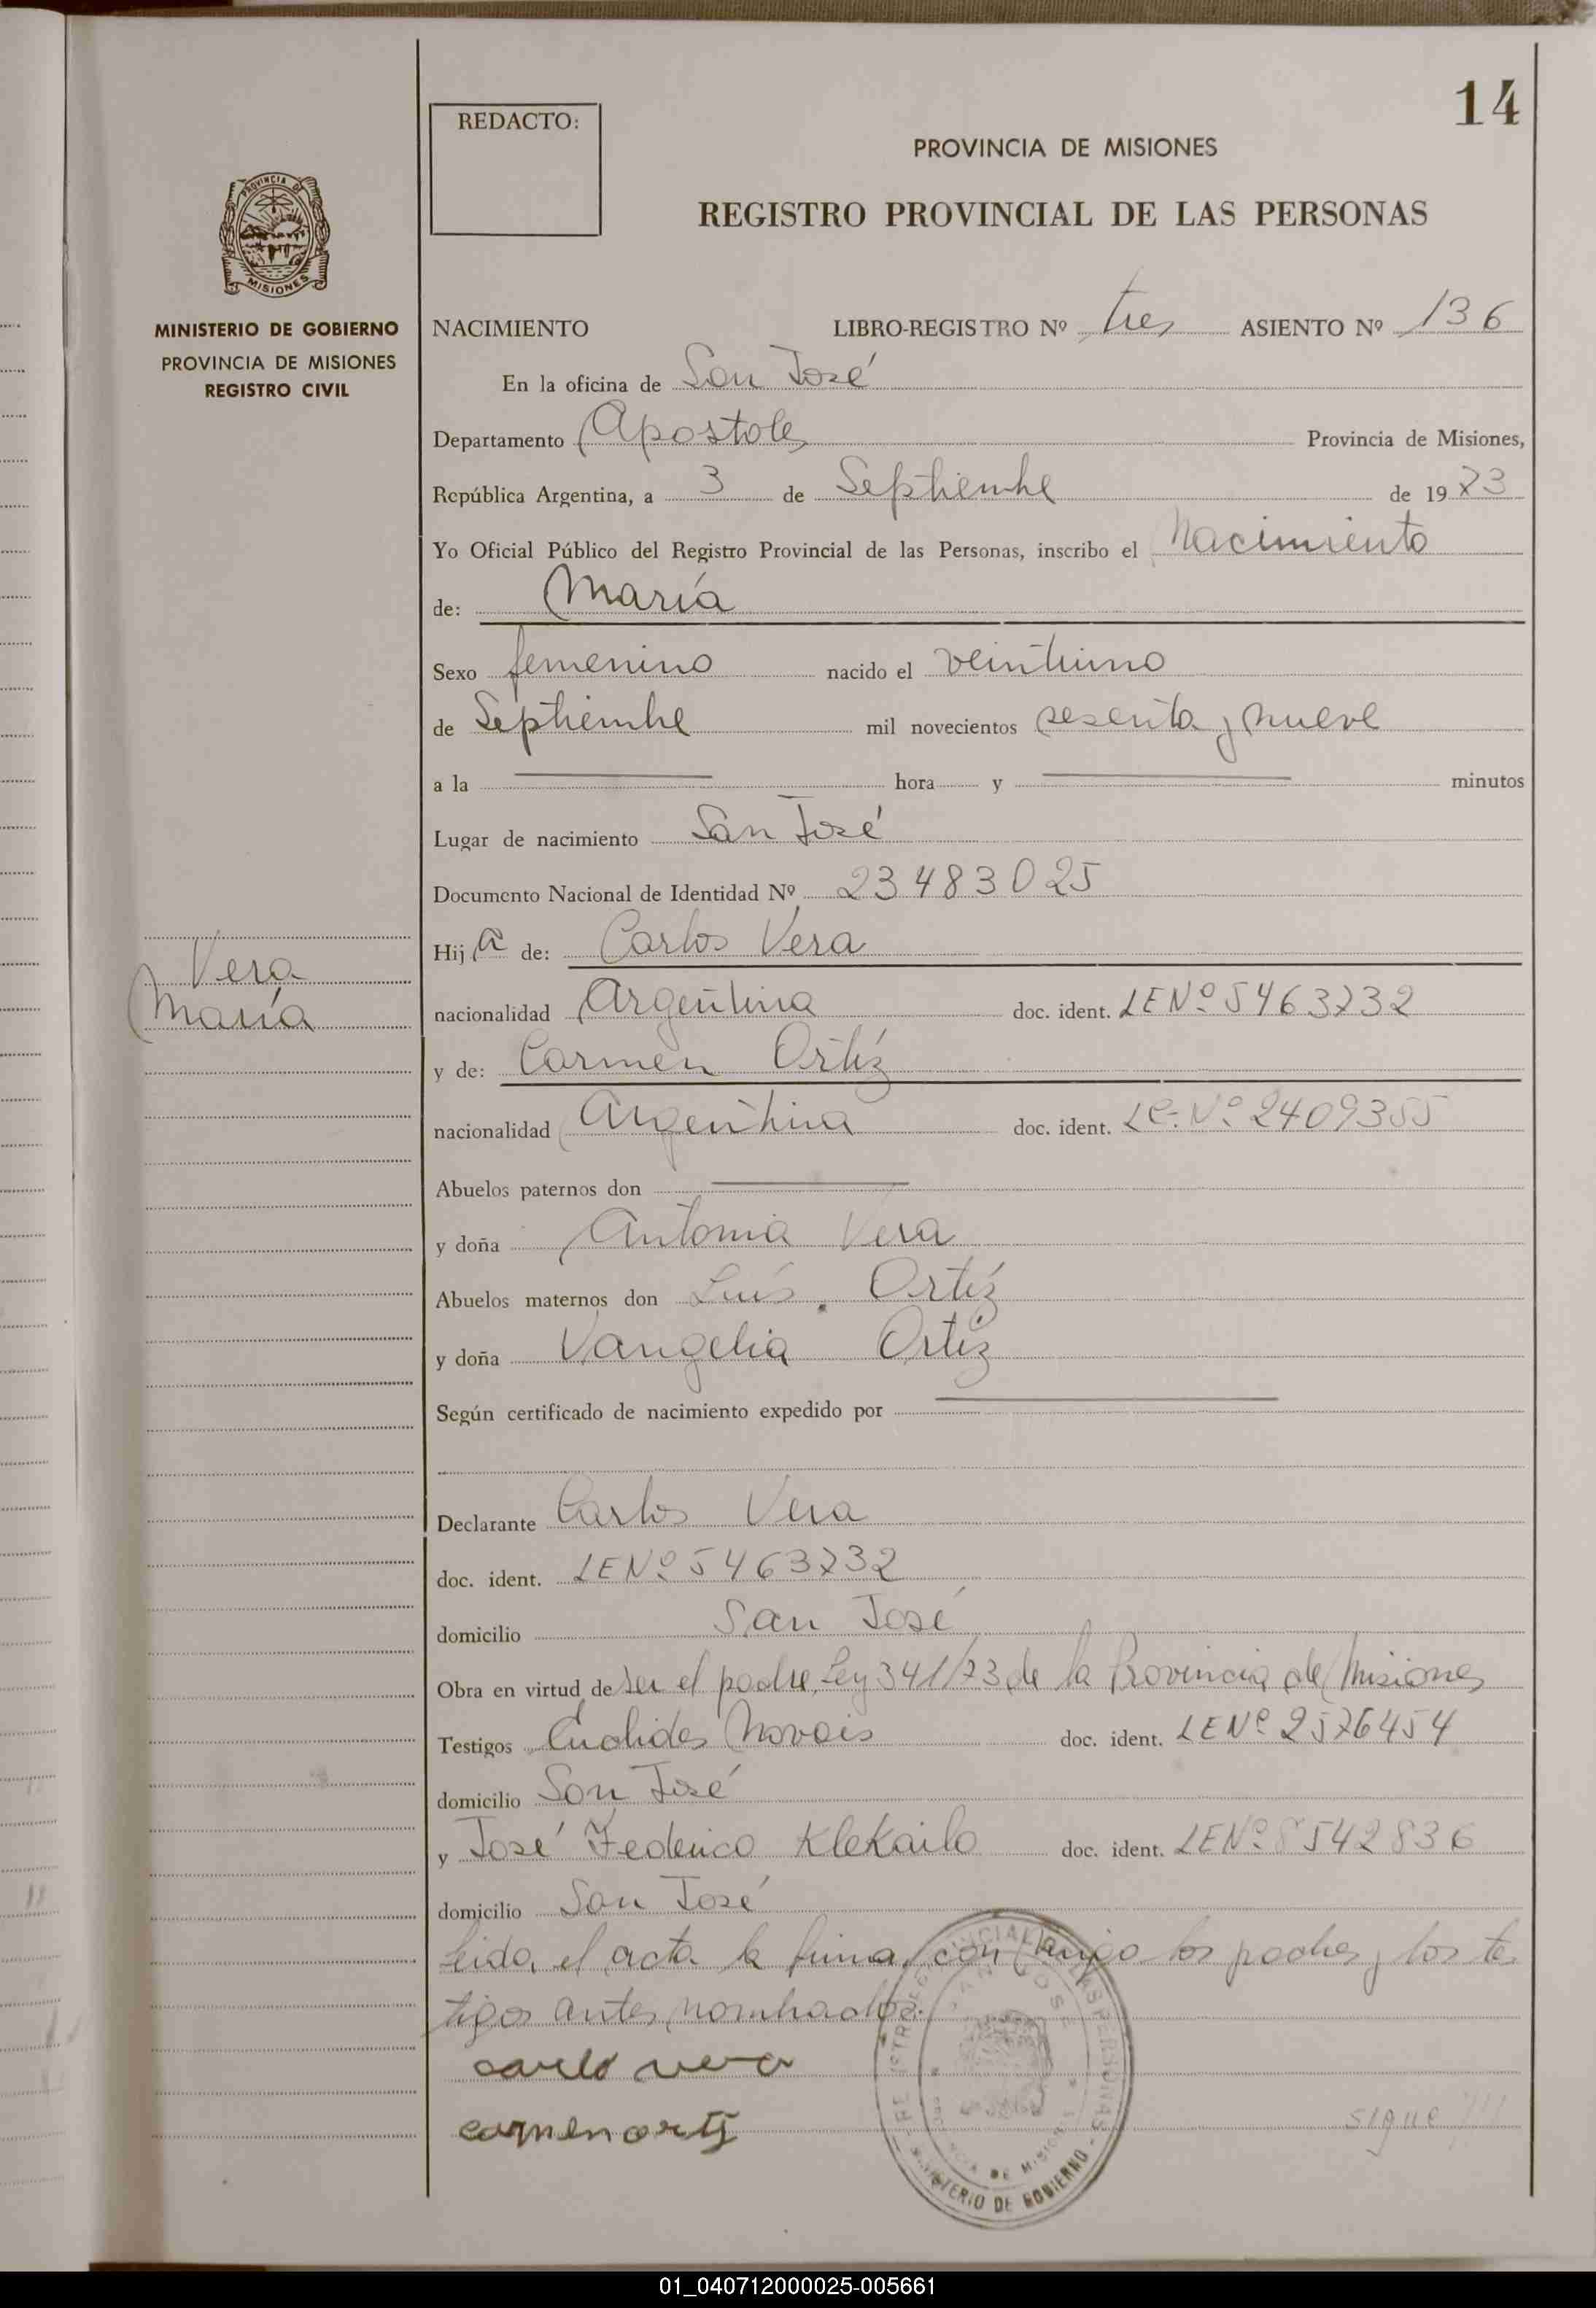 14
REDACTO:
PROVINCIA DE MISIONES
REGISTRO PROVINCIAL DE LAS PERSONAS
PROVINCIA DE
MISIONES
MINISTERIO DE GOBIERNO
PROVINCIA DE MISIONES
REGISTRO CIVIL
NACIMIENTO LIBRO-REGISTRO Nº tres ASIENTO Nº 136
En la oficina de San José
Departamento Apostoles Provincia de Misiones,
República Argentina, a 3 de Septiembre de 1973
Yo Oficial Público del Registro Provincial de las Personas, inscribo el Nacimiento
de: María
Sexo femenino nacido el veintiuno
de Septiembre mil novecientos sesenta y nueve
a la hora y minutos
Lugar de nacimiento San José
Documento Nacional de Identidad Nº 23483025
Hija de: Carlos Vera
Vera
María
nacionalidad Argentina doc. ident. LENº 5463732
y de: Carmen Ortíz
nacionalidad Argentina doc. ident. LC. Nº 2409355
Abuelos paternos don
y doña Antonia Vera
Abuelos maternos don Luís Ortíz
y doña Vangelia Ortíz
Según certificado de nacimiento expedido por
Declarante Carlos Vera
doc. ident. LENº 5463732
domicilio San José
Obra en virtud de ser el padre, Ley 341/73 de la Provincia de Misiones
Testigos Euclides Novais doc. ident. LENº 2576454
domicilio San José
y José Federico Klekailo doc. ident. LENº 8542836
domicilio San José
Leida el acta la firman con migo los padres y los tes
tigos antes nombrados.
carlo vera
carmen ortiz
sigue ///
SAN JOSE
MINISTERIO DE GOBIERNO
01_040712000025-005661